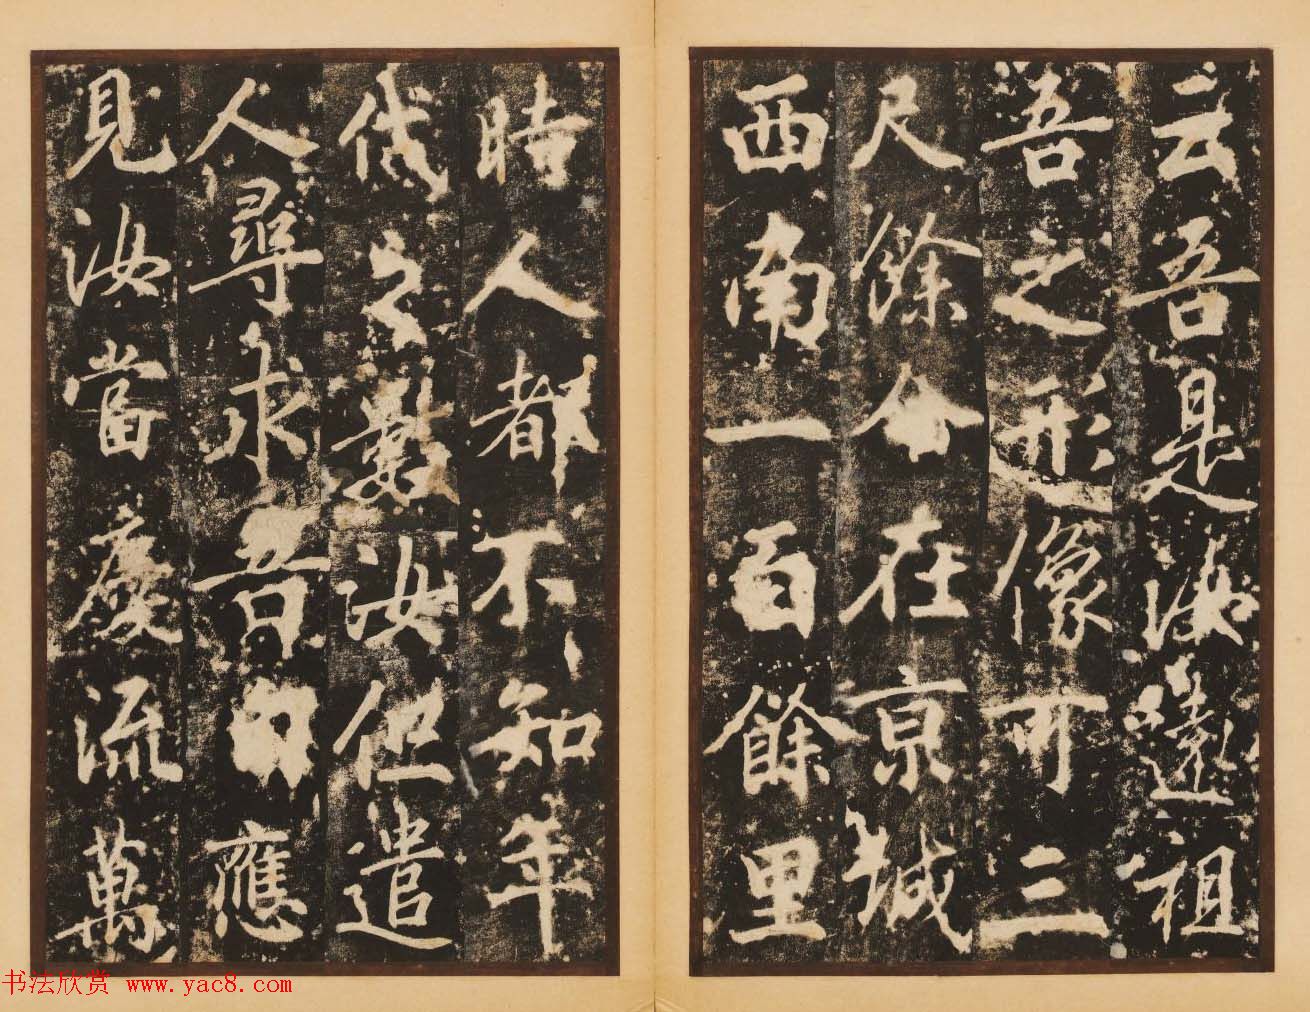 云吾是汝遠祖
吾之形像可三
尺餘今在京城
西南一百餘里
時人都不知年
代之數汝但遣
人尋求吾自應
見汝當慶流萬
书法欣赏 www.yac8.com